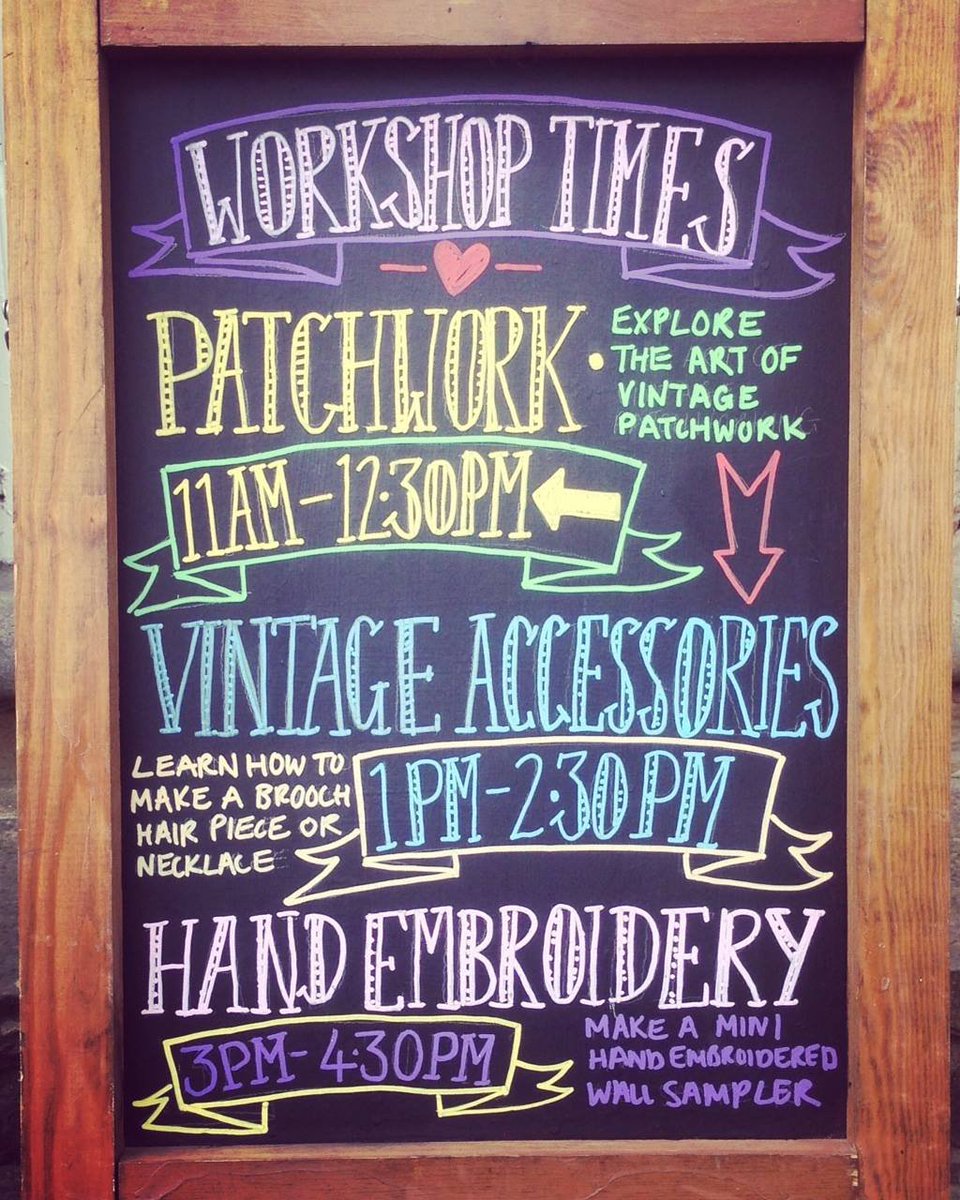 WORKSHOP TIMES
PATCHWORK •
EXPLORE
THE ART OF
VINTAGE
PATCHWORK
11AM – 12·30PM
VINTAGE ACCESSORIES
LEARN HOW TO
MAKE A BROOCH
HAIR PIECE OR
NECKLACE
1PM – 2·30PM
HAND EMBROIDERY
3PM – 4·30PM
MAKE A MINI
HAND EMBROIDERED
WALL SAMPLER